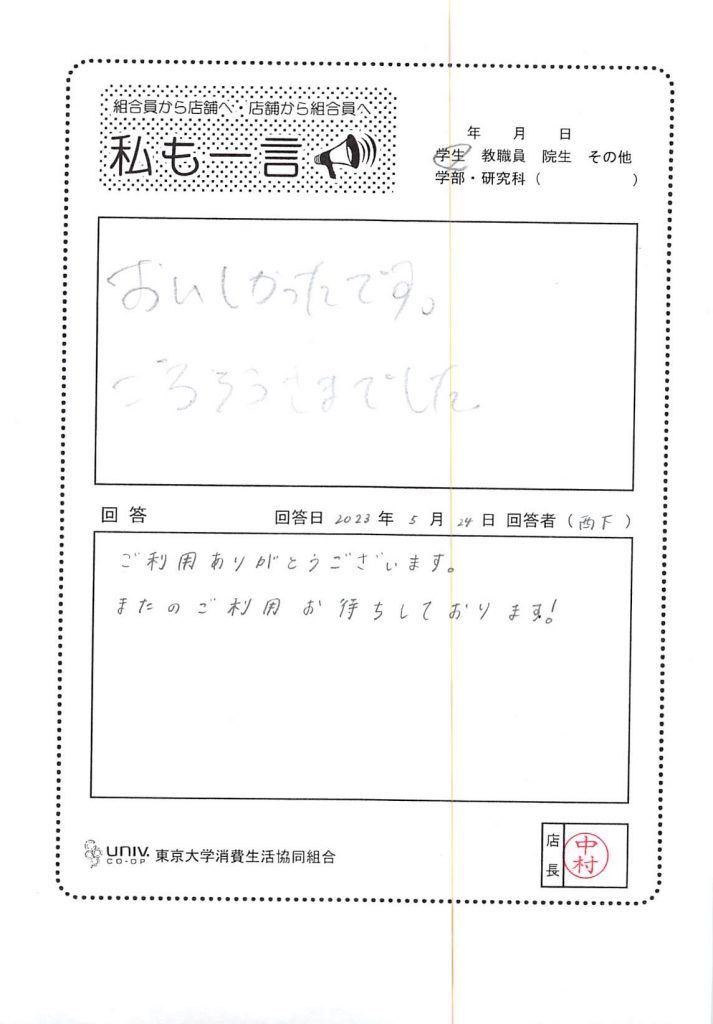 組合員から店舗へ 店舗から組合員へ
私も一言
年 月 日
学生 教職員 院生 その他
学部・研究科（ ）
おいしかったです。
ごろろうさまでした
回答 回答日 2023 年 5 月 24 日 回答者（西下）
ご利用ありがとうございます。
またのご利用お待ちしております!
UNIV.
CO-OP
東京大学消費生活協同組合
店長
中村